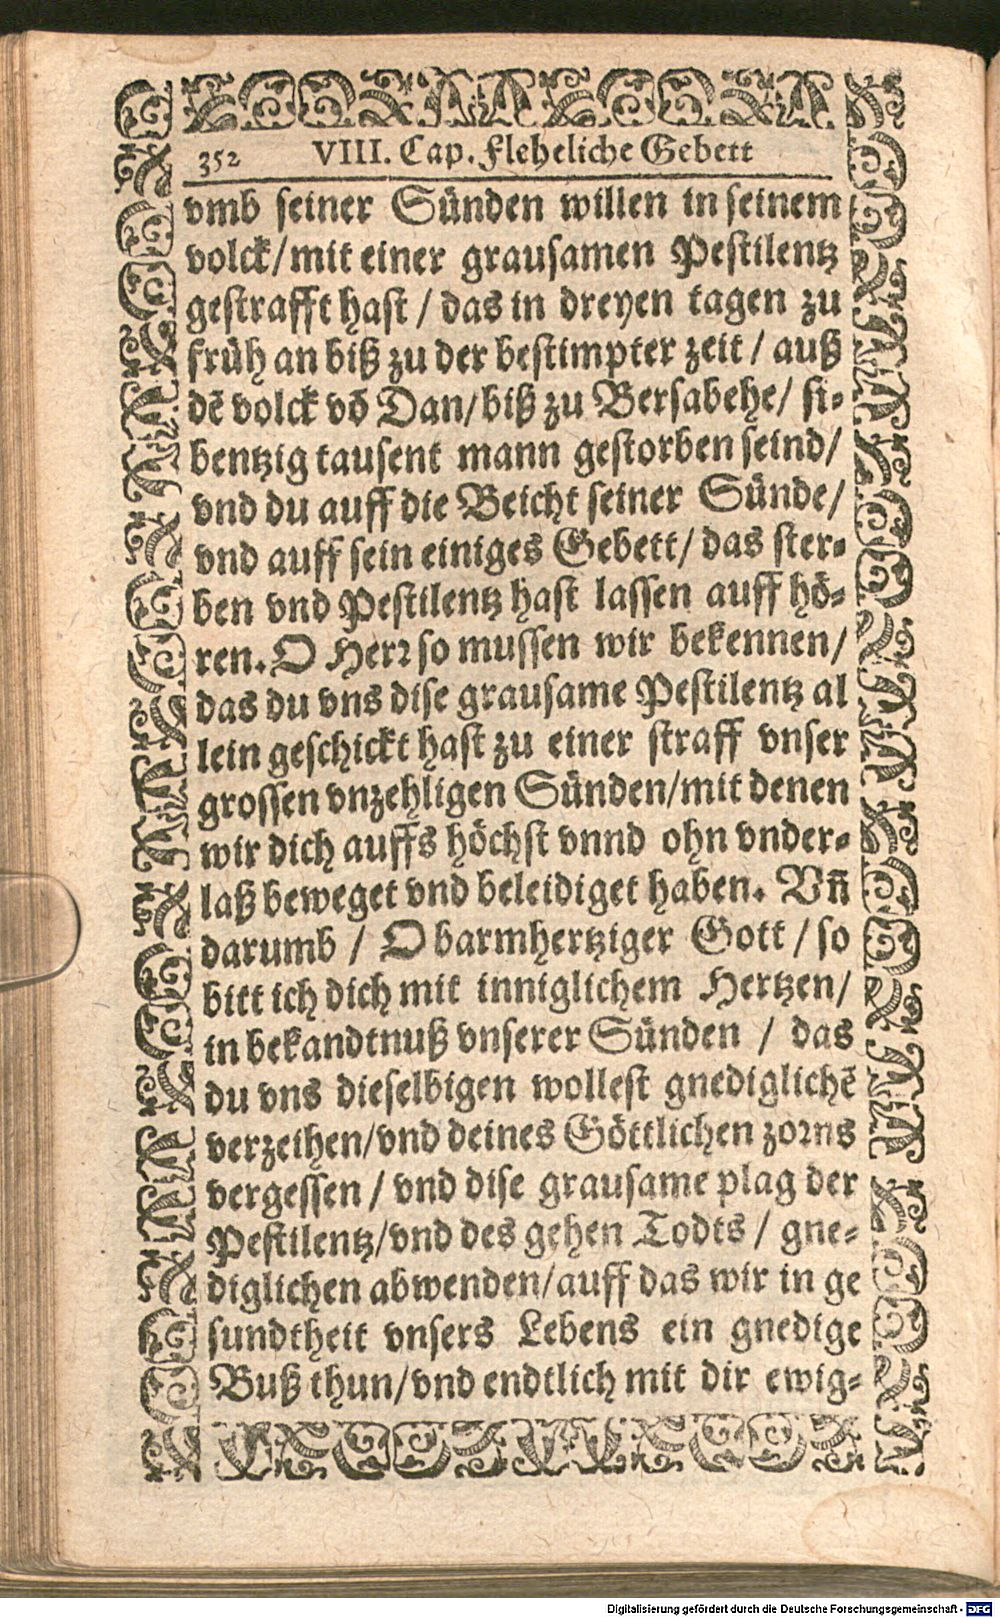 352 VIII. Cap. Fleheliche Gebett
vmb seiner Sünden willen in seinem
volck/mit einer grausamen Pestilentz
gestrafft hast / das in dreyen tagen zu
früh an biß zu der bestimpter zeit / auß
dē volck vō Dan/biß zu Bersabehe/ si-
bentzig tausent mann gestorben seind/
vnd du auff die Beicht seiner Sünde/
vnd auff sein einiges Gebett/ das ster-
ben vnd Pestilentz hast lassen auff hö-
ren. O Herr so mussen wir bekennen/
das du vns dise grausame Pestilentz al
lein geschickt hast zu einer straff vnser
grossen vnzehligen Sünden/mit denen
wir dich auffs höchst vnnd ohn vnder-
laß beweget vnd beleidiget haben. Vñ
darumb / O barmhertziger Gott / so
bitt ich dich mit inniglichem Hertzen/
in bekandtnuß vnserer Sünden / das
du vns dieselbigen wollest gnediglichē
verzeihen/vnd deines Göttlichen zorns
vergessen / vnd dise grausame plag der
Pestilentz/vnd des gehen Todts / gne-
diglichen abwenden/auff das wir in ge
sundtheit vnsers Lebens ein gnedige
Buß thun/vnd endtlich mit dir ewig-
Digitalisierung gefördert durch die Deutsche Forschungsgemeinschaft - DFG